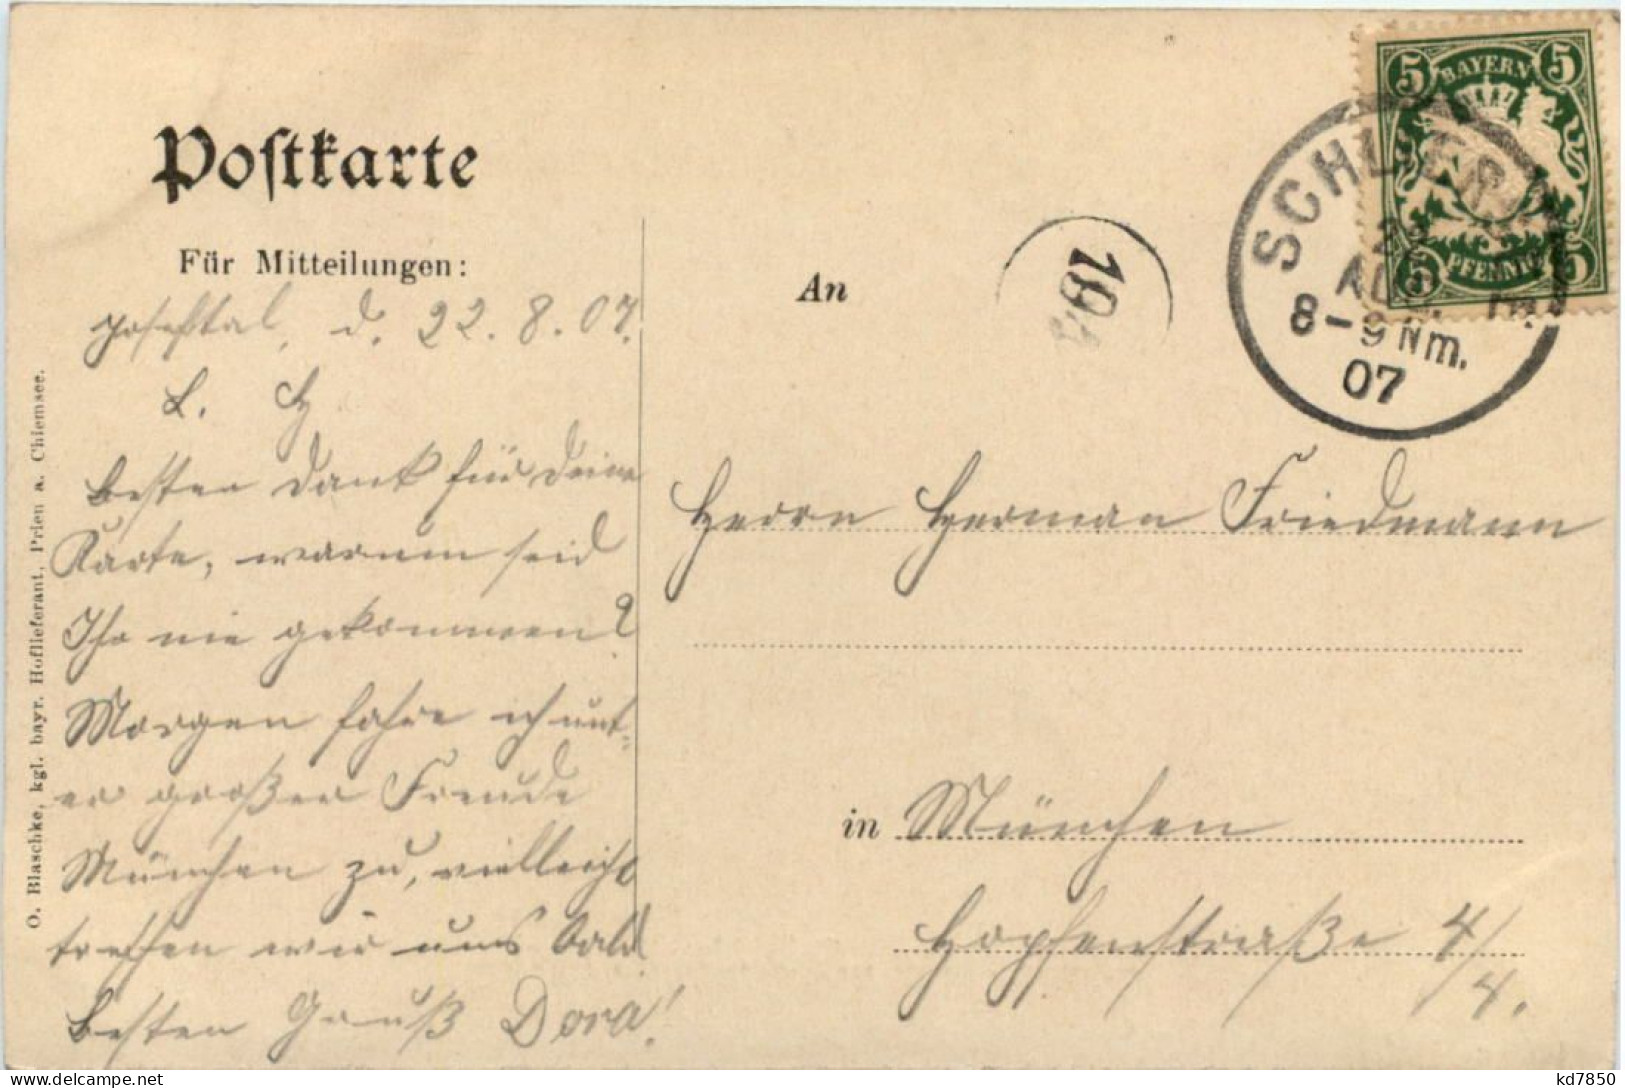 Postkarte
Für Mitteilungen:
Josefstal, d. 22.8.07.
L. H.
Besten Dank für Deine
Karte, warum seid
Ihr nie gekommen?
Morgen fahre ich unt-
er großer Freude
München zu, vielleicht
treffen wir uns bald
Besten Gruß Dora!
O. Blaschke, kgl. bayr. Hoflieferant, Prien a. Chiemsee.
An
19
SCHLIER
AUG.
8-9 Nm.
07
5 BAYERN 5
5 PFENNIG 5
Herrn Herman Friedmann
in München
Hopfenstraße 4/
4.
kd7850